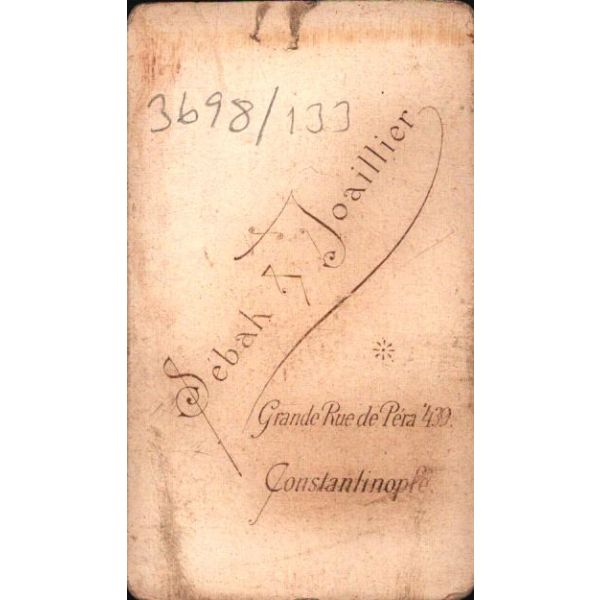 3698/133
Sébah & Joaillier
Grande Rue de Péra 439.
Constantinople.